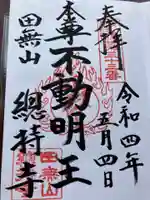 奉拝
令和四年
五月四日
本尊不動明王
田無山
總持寺